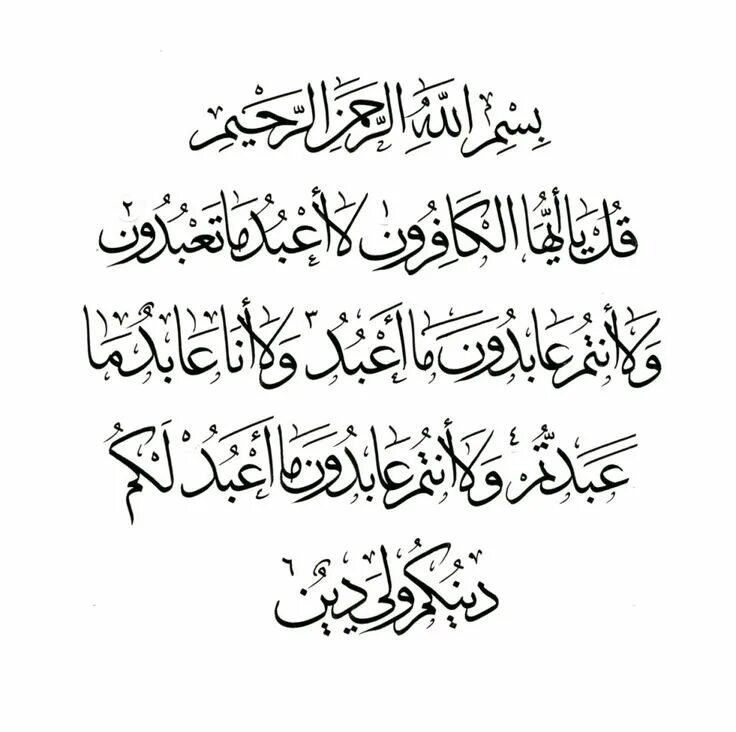 بِسْمِ اللَّهِ الرَّحْمَنِ الرَّحِيمِ
قُلْ يَا أَيُّهَا الْكَافِرُونَ ١ لَا أَعْبُدُ مَا تَعْبُدُونَ ٢
وَلَا أَنتُمْ عَابِدُونَ مَا أَعْبُدُ ٣ وَلَا أَنَا عَابِدٌ مَا
عَبَدتُّمْ ٤ وَلَا أَنتُمْ عَابِدُونَ مَا أَعْبُدُ ٥ لَكُمْ
دِينُكُمْ وَلِيَ دِينِ ٦